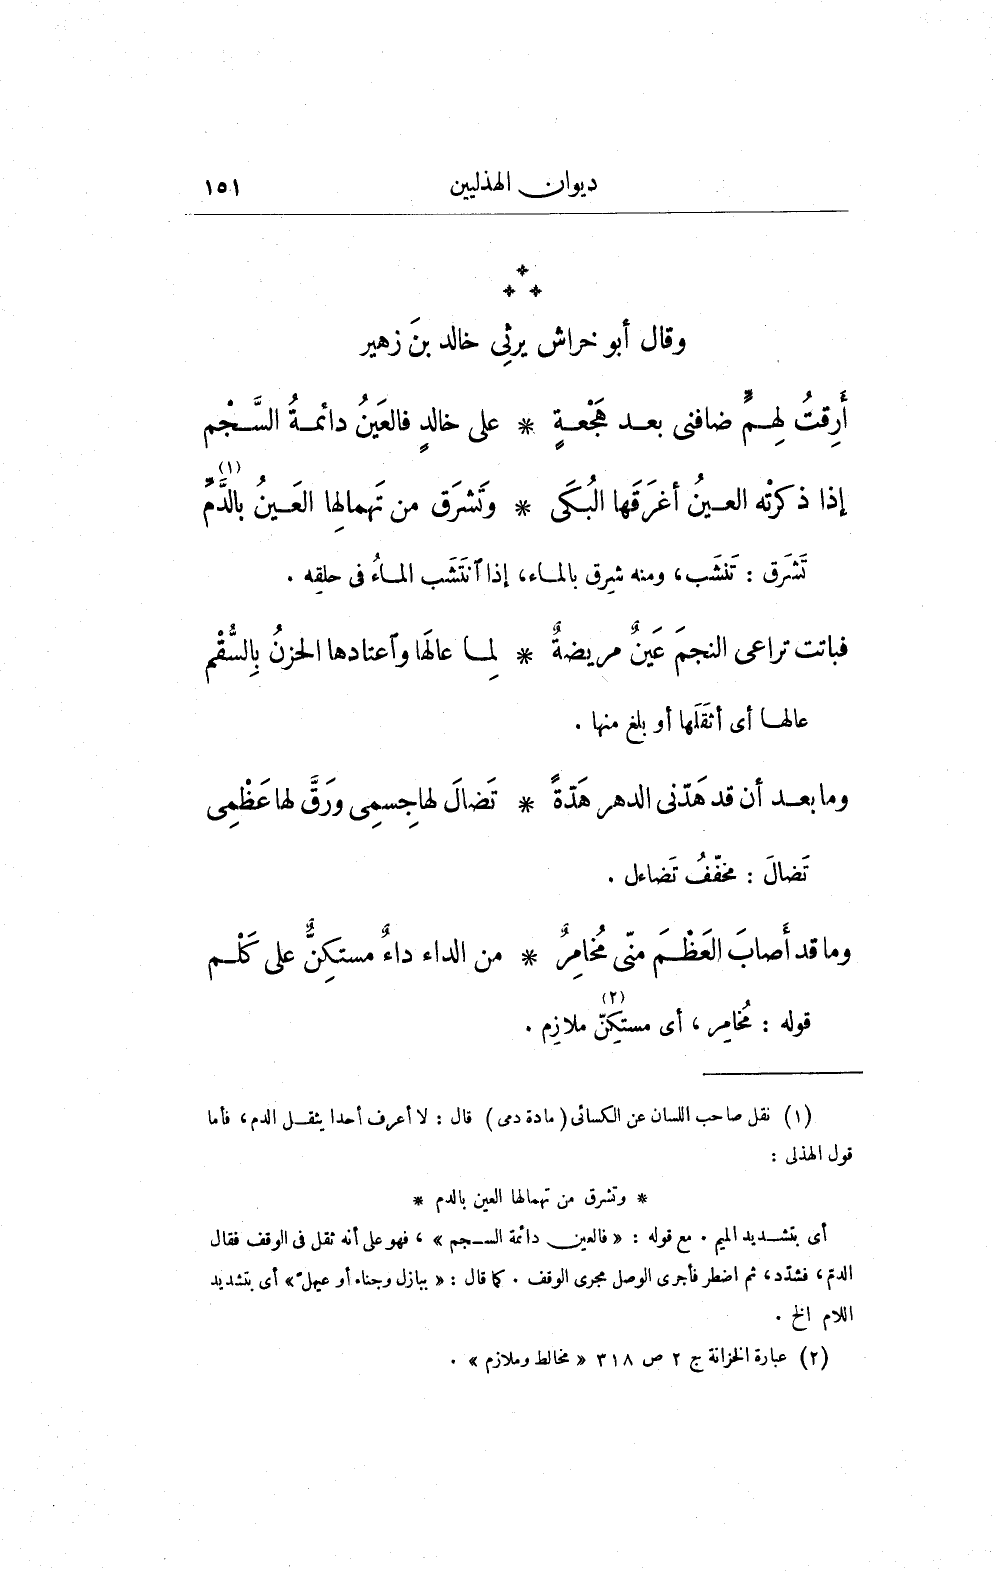 ديوان الهذليين ١٥١
وقال أبو خراش يرثِى خالد بنَ زهير
أَرِقتُ لِهمٍّ ضافنى بعد هَجْعةٍ * على خالدٍ فالعَينُ دائمةُ السَّجْم
إذا ذكرتْه العينُ أغرَقَها البُكَى * وتَشرَق من تَهمالِها العَينُ بالدَّمِّ (١)
تَشرَق : تَنشَب، ومنه شرِق بالماء، إذا ٱنتَشَب الماءُ فى حلقِه .
فباتت تراعى النجمَ عَينٌ مريضةٌ * لِما عالَها وٱعتادها الحزنُ بِالسُّقْم
عالها أى أثقَلَها أو بلغ منها .
وما بعد أن قد هَدّنى الدهر هَدّةً * تَضالَ لها جِسمِى ورَقَّ لها عَظْمِى
تَضالَ : مخفّفُ تَضاءل .
وما قد أَصابَ العَظْمَ منّى مُخامِرٌ * من الداء داءٌ مستكِنٌّ على كَلْم
قوله : مُخامِر، أى مستكِنّ (٢) ملازِم .
(١) نقل صاحب اللسان عن الكسائى (مادة دمى) قال : لا أعرف أحدا يثقل الدم، فأما
قول الهذلى :
* وتشرق من تهمالها العين بالدم *
أى بتشديد الميم . مع قوله : « فالعين دائمة السجم » ، فهو على أنه ثقل فى الوقف فقال
الدمّ، فشدّد، ثم اضطر فأجرى الوصل مجرى الوقف . كما قال : « ببازل وجناء أو عيهلّ » أى بتشديد
اللام الخ .
(٢) عبارة الخزانة ج ٢ ص ٣١٨ « مخالط وملازم » .